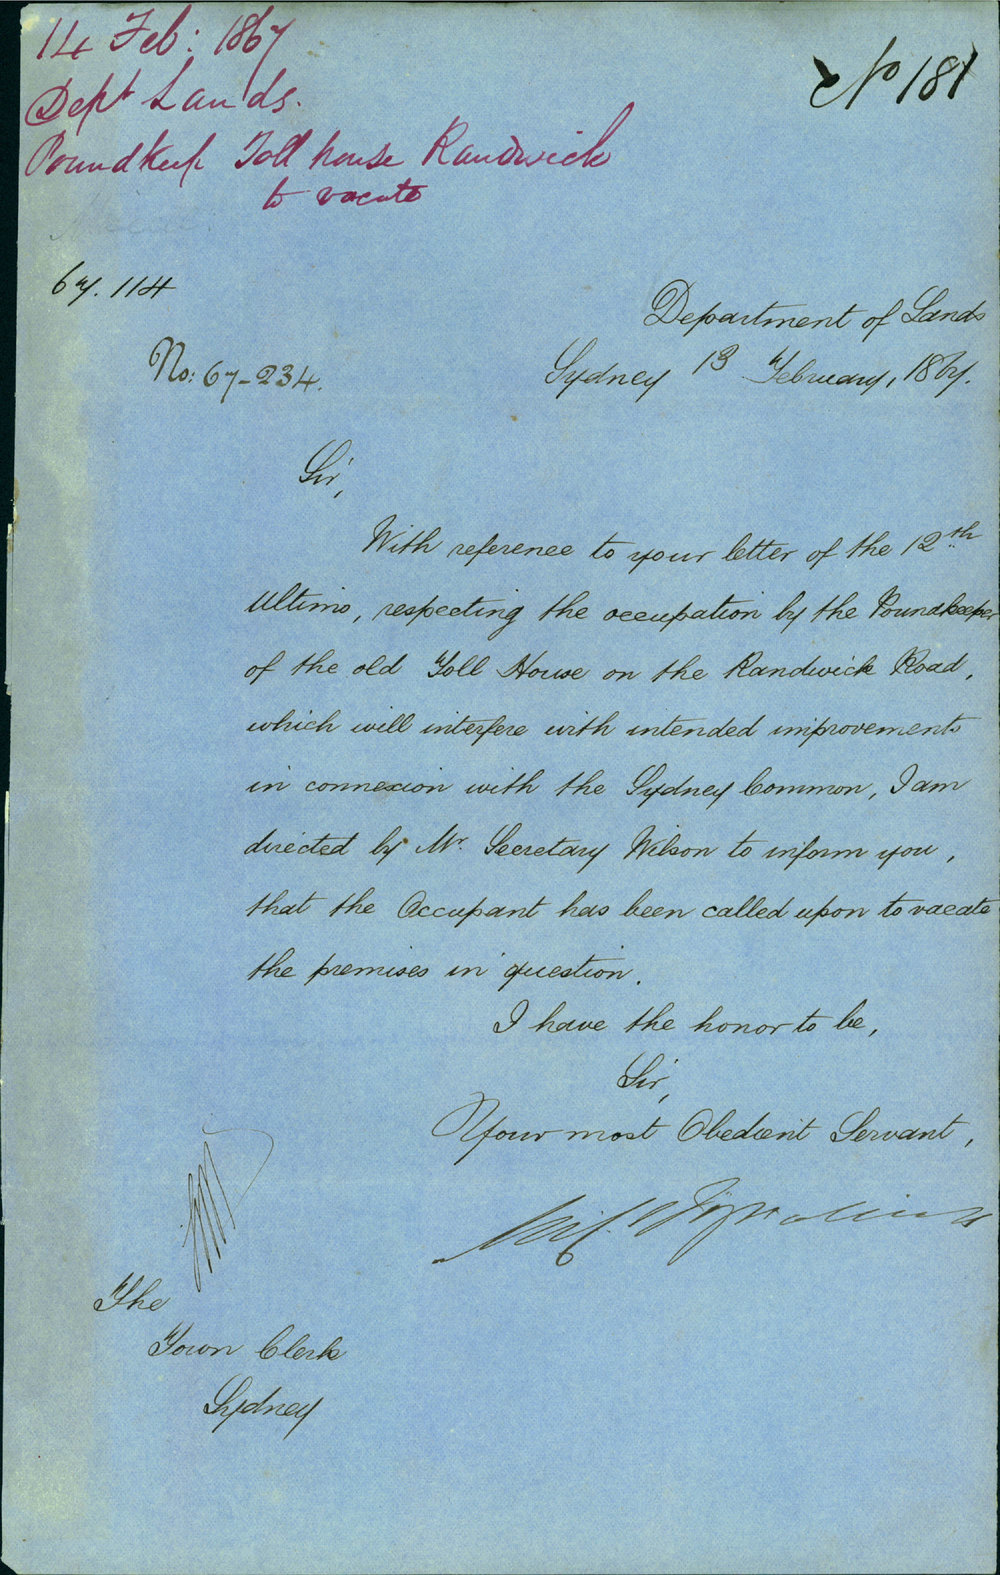 14 Feb: 1867
Dept Lands.
Poundkeep Toll house Randwick
to vacate
No 181
67.114
Department of Lands
No: 67-234.
Sydney 13 February, 1867.
Sir,
With reference to your letter of the 12th
Ultimo, respecting the occupation by the Poundkeeper
of the old Toll House on the Randwick Road,
which will interfere with intended improvements
in connexion with the Sydney Common, I am
directed by Mr. Secretary Wilson to inform you,
that the Occupant has been called upon to vacate
the premises in question.
I have the honor to be,
Sir,
Your most Obedient Servant,
The
Town Clerk
Sydney